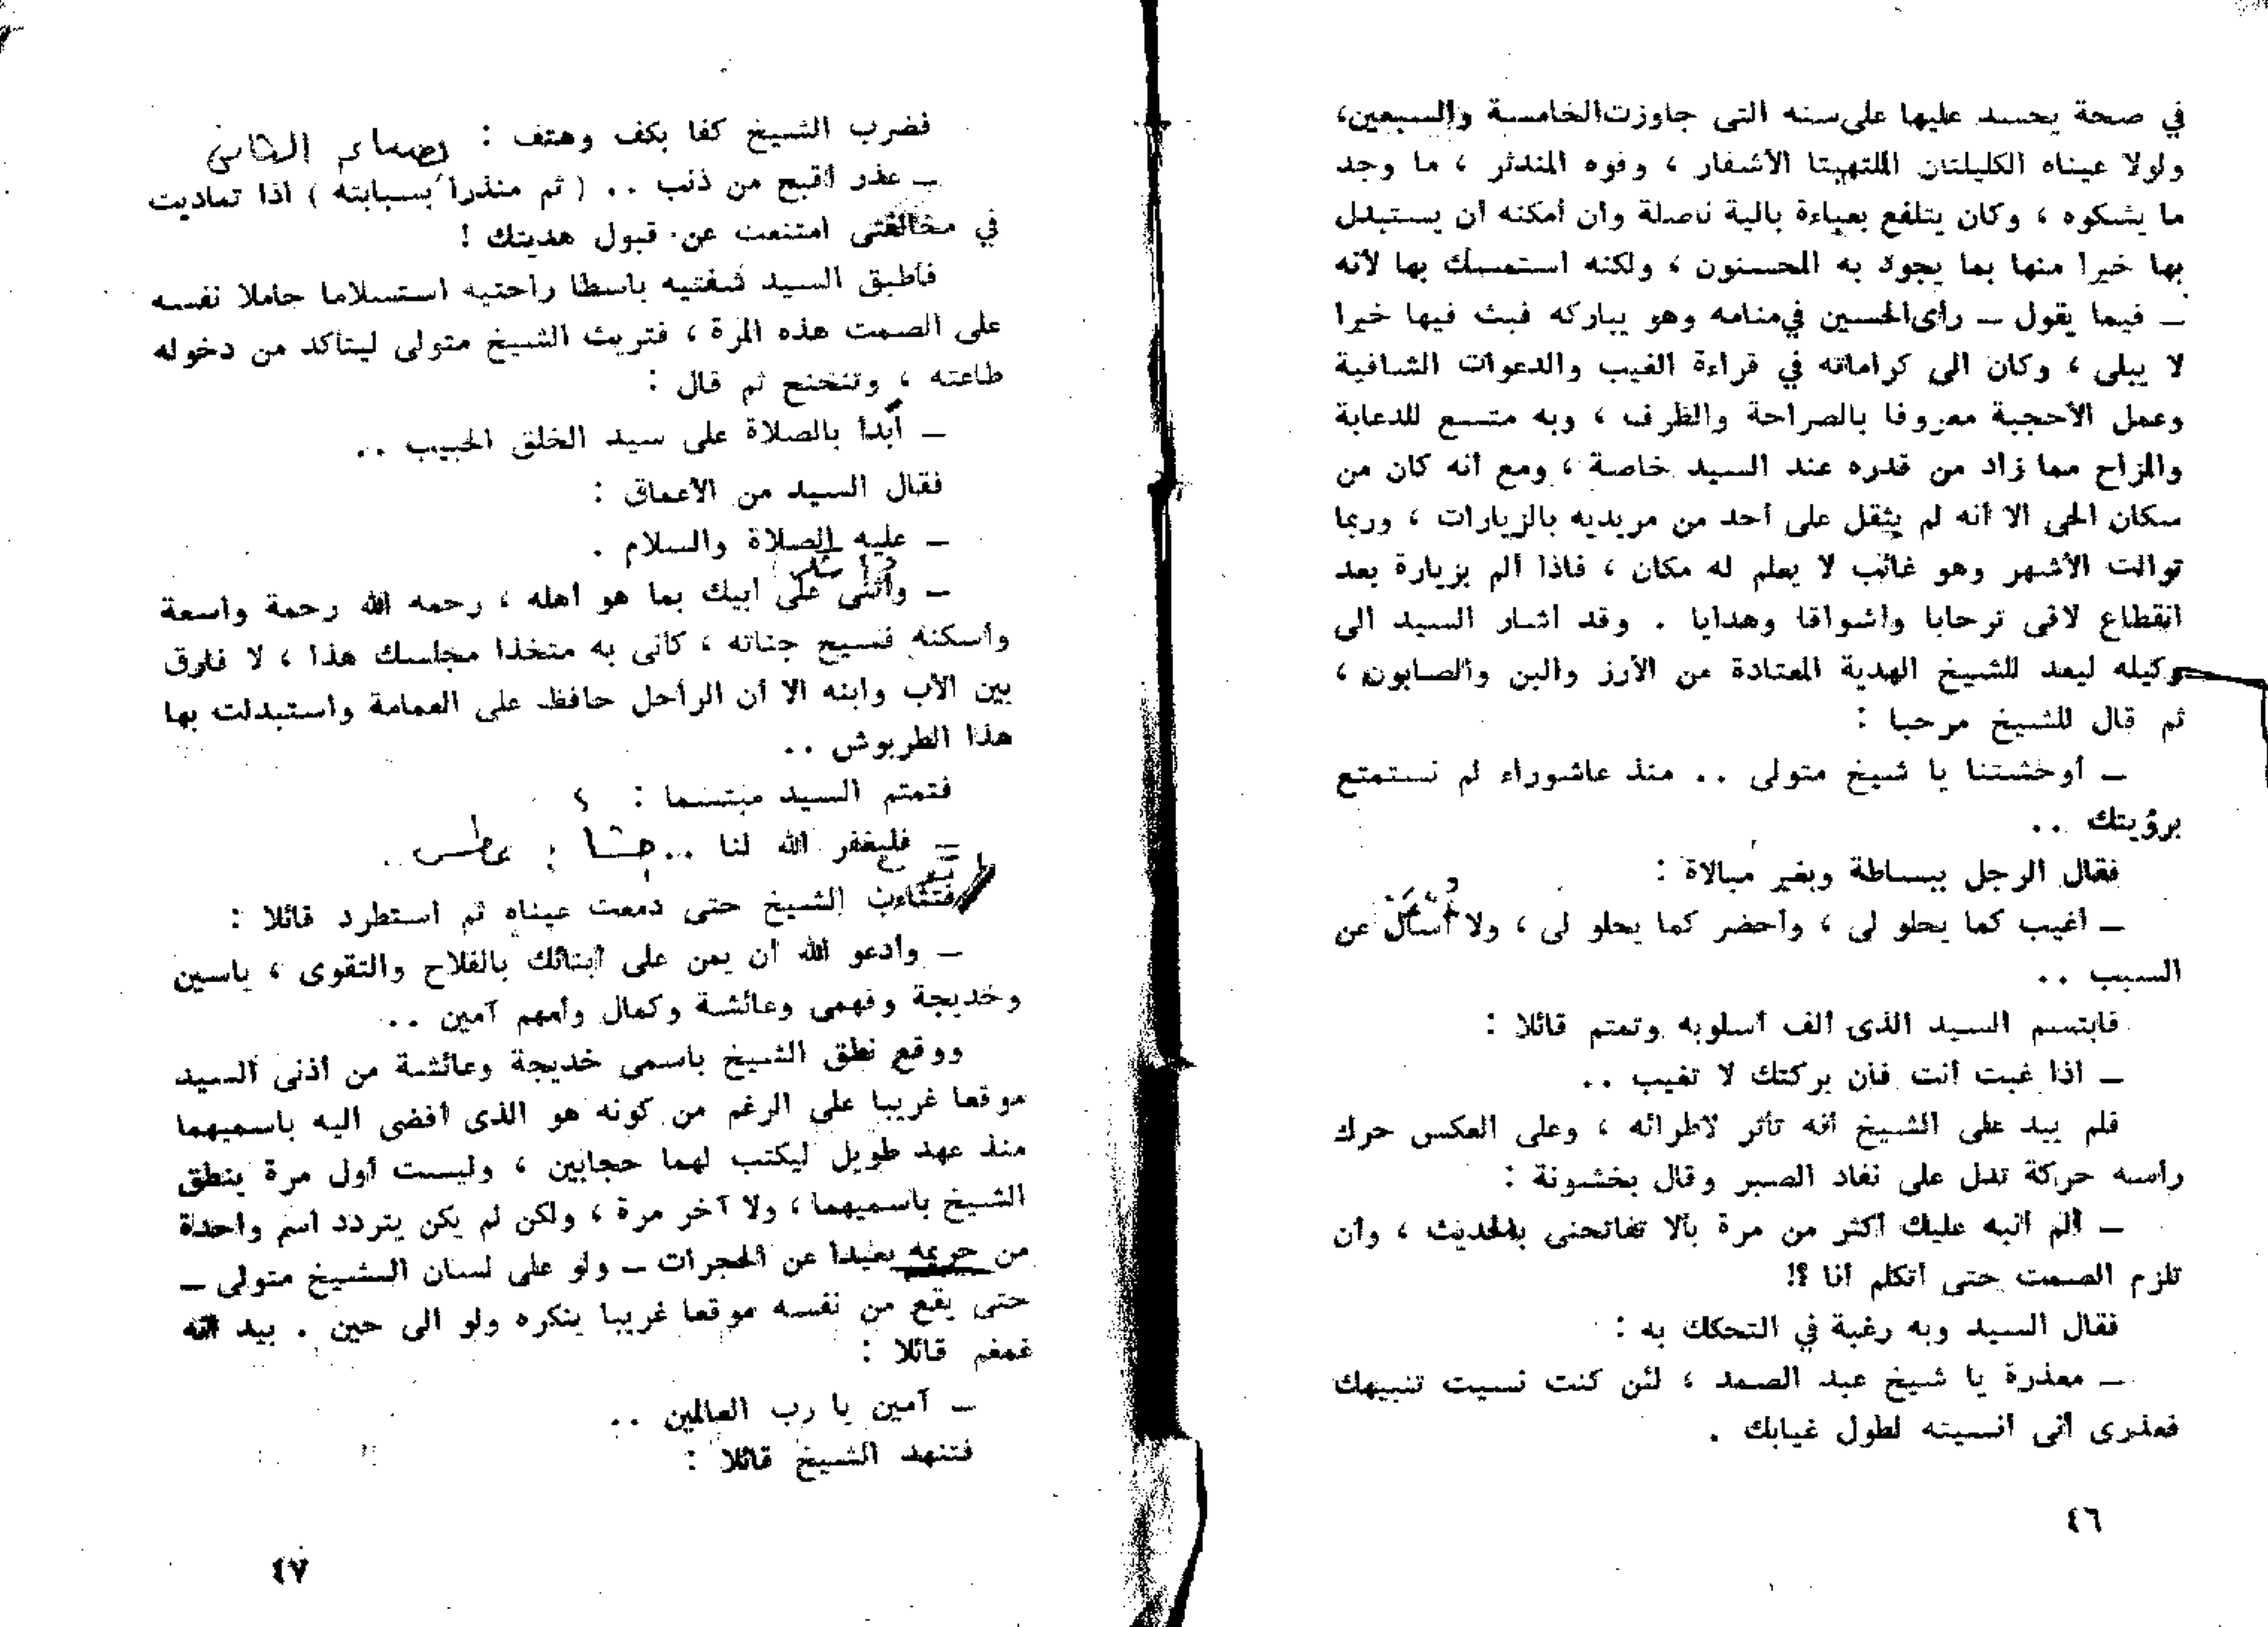 في صحة يحسد عليها على سنه التى جاوزت الخامسة والسبعين،
ولولا عيناه الكليلتان الملتهبتا الأشفار ، وفوه المندثر ، ما وجد
ما يشكوه ، وكان يتلفع بعباءة بالية ناصلة وان أمكنه أن يستبدل
بها خيرا منها بما يجود به المحسنون ، ولكنه استمسك بها لأنه
ـ فيما يقول ـ رأى الحسين في منامه وهو يباركه فبث فيها خيرا
لا يبلى ، وكان الى كراماته في قراءة الغيب والدعوات الشافية
وعمل الأحجبة معروفا بالصراحة والظرف ، وبه متسع للدعابة
والمزاح مما زاد من قدره عند السيد خاصة ، ومع أنه كان من
سكان الحى الا أنه لم يثقل على أحد من مريديه بالزيارات ، وربما
توالت الأشهر وهو غائب لا يعلم له مكان ، فاذا ألم بزيارة بعد
انقطاع لاقى ترحابا واشواقا وهدايا . وقد أشار السيد الى
وكيله ليعد للشيخ الهدية المعتادة من الأرز والبن والصابون ،
ثم قال للشيخ مرحبا :
ـ أوحشتنا يا شيخ متولى .. منذ عاشوراء لم نستمتع
برؤيتك ..
فقال الرجل ببساطة وبغير مبالاة :
ـ أغيب كما يحلو لى ، وأحضر كما يحلو لى ، ولا أسأل عن
السبب ..
فابتسم السيد الذى ألف أسلوبه وتمتم قائلا :
ـ اذا غبت أنت فان بركتك لا تغيب ..
فلم يبد على الشيخ أنه تأثر لاطرائه ، وعلى العكس حرك
رأسه حركة تدل على نفاد الصبر وقال بخشونة :
ـ ألم أنبه عليك أكثر من مرة بألا تفاتحنى بالحديث ، وأن
تلزم الصمت حتى أتكلم أنا ؟!
فقال السيد وبه رغبة في التحكك به :
ـ معذرة يا شيخ عبد الصمد ، لئن كنت نسيت تنبيهك
فعذرى أنى أنسيته لطول غيابك .
٤٦
فضرب الشيخ كفا بكف وهتف :
ـ عذر أقبح من ذنب .. ( ثم منذرا بسبابته ) اذا تماديت
في مخالفتى امتنعت عن قبول هديتك !
فأطبق السيد شفتيه باسطا راحتيه استسلاما حاملا نفسه
على الصمت هذه المرة ، فتريث الشيخ متولى ليتأكد من دخوله
طاعته ، وتنحنح ثم قال :
ـ أبدأ بالصلاة على سيد الخلق الحبيب ..
فقال السيد من الأعماق :
ـ عليه الصلاة والسلام .
ـ وأثنى على أبيك بما هو أهله ، رحمه الله رحمة واسعة
وأسكنه فسيح جناته ، كأنى به متخذا مجلسك هذا ، لا فارق
بين الأب وابنه الا أن الراحل حافظ على العمامة واستبدلت بها
هذا الطربوش ..
فتمتم السيد مبتسما : ؟
ـ فليغفر الله لنا .. : عطس
فتثاءب الشيخ حتى دمعت عيناه ثم استطرد قائلا :
ـ وأدعو الله أن يمن على أبنائك بالفلاح والتقوى ، ياسين
وخديجة وفهمى وعائشة وكمال وأمهم آمين ..
ووقع نطق الشيخ باسمى خديجة وعائشة من أذنى السيد
موقعا غريبا على الرغم من كونه هو الذى أفضى اليه باسميهما
منذ عهد طويل ليكتب لهما حجابين ، وليست أول مرة ينطق
الشيخ باسميهما ، ولا آخر مرة ، ولكن لم يكن يتردد اسم واحدة
من حريمه بعيدا عن الحجرات ـ ولو على لسان الشيخ متولى ـ
حتى يقع من نفسه موقعا غريبا ينكره ولو الى حين . بيد أنه
غمغم قائلا :
ـ آمين يا رب العالمين ..
فتنهد الشيخ قائلا :
٤٧